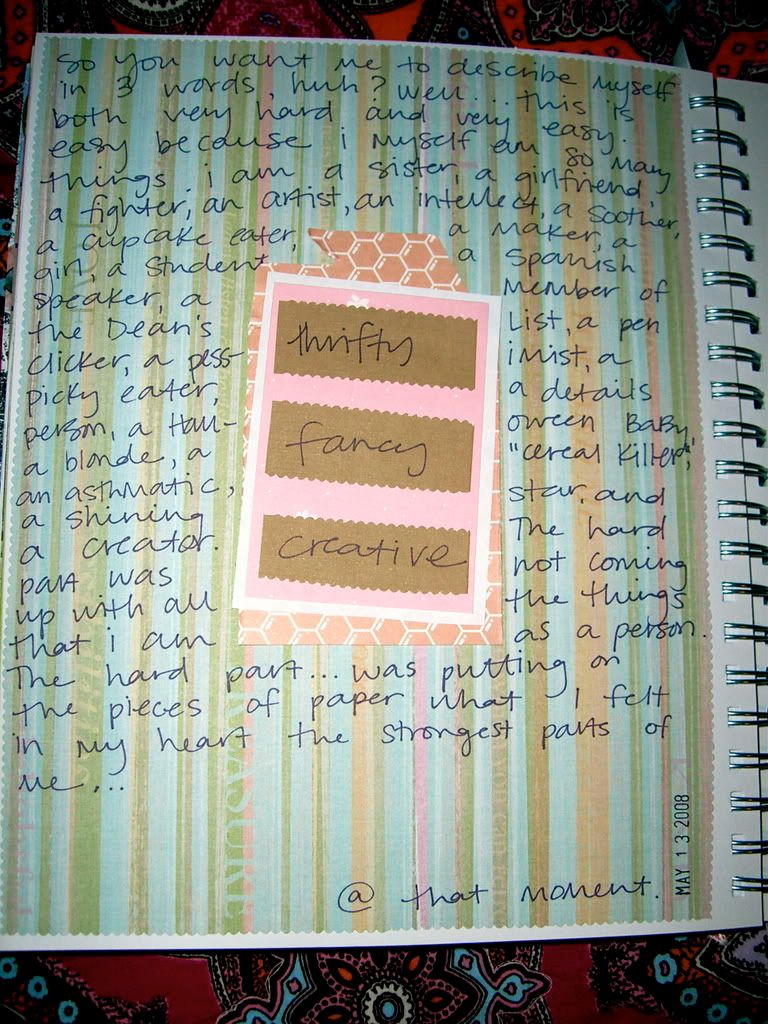 so you want me to describe myself
in 3 words, huh? well... this is
both very hard and very easy.
easy because i myself am so many
things. i am a sister, a girlfriend,
a fighter, an artist, an intellect, a soother,
a cupcake eater, a maker, a
girl, a student a spanish
speaker, a member of
the Dean's List, a pen
clicker, a pess- imist, a
picky eater, a details
person, a Hall- oween Baby
a blonde, a "cereal killer,"
an asthmatic,
a shining star. and
a creator. The hard
part was not coming
up with all the things
that i am as a person.
The hard part... was putting on
the pieces of paper what I felt
in my heart the strongest parts of
me...
thrifty
fancy
creative
@ that moment.
MAY 13 2008